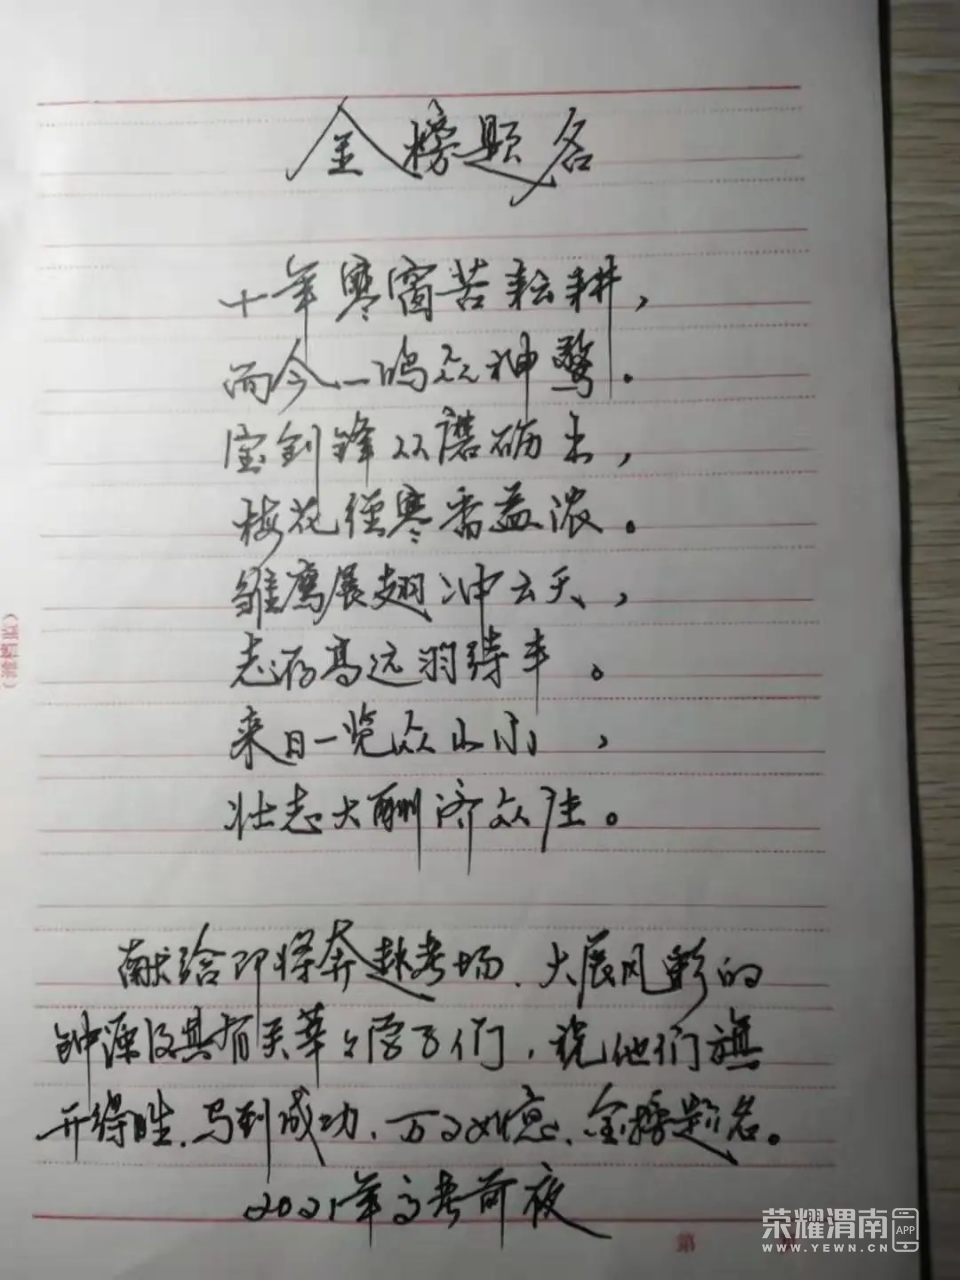 金榜题名
十年寒窗苦耘耕，
而今一鸣众神惊。
宝剑锋从磨砺出，
梅花经寒香益浓。
雏鹰展翅冲云天，
志存高远羽待丰。
来日一览众山小，
壮志大酬济众生。
献给即将奔赴考场、大展风彩的
钟源及其有关莘々学子们，祝他们旗
开得胜、马到成功、万事如意、金榜题名。
2021年高考前夜
第
荣耀渭南 APP
WWW.YEWN.CN